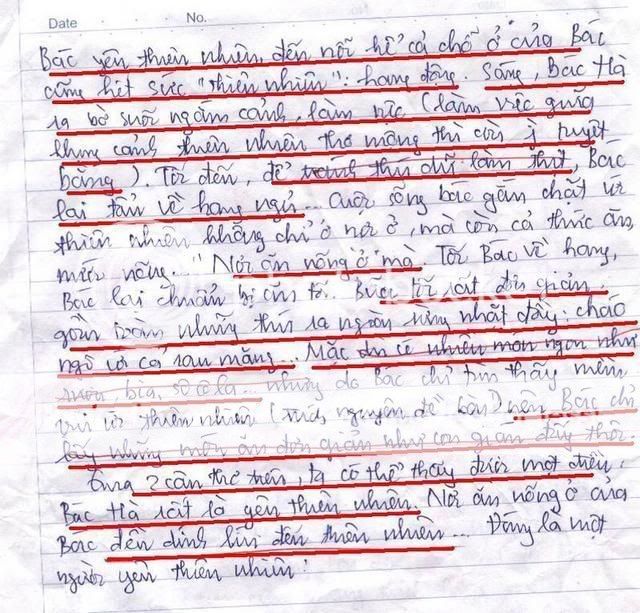 Date No.
Bác yên thiên nhiên, đến nỗi hể cả chổ ở của Bác
cũng hết sức "thiên nhiên": hang động. Sáng, Bác Hà
ra bờ suối ngắm cảnh, làm nịc (làm việc giữa
khung cảnh thiên nhiên thơ mộng thì còn j tuyệt
bằng). Tối đến, để thú dữ làm thịt, Bác
lại tản về hang ngủ... Cuộc sống bác gắn chặt với
thiên nhiên không chỉ ở nơi ở, mà còn cả thức ăn,
nước nống. "Nơi ăn nống ở" mà. Tối Bác về hang,
Bác lại chuẩn bị ăn tối. Bữa tối rất đơn giản,
gồm toàn những thứ ra ngoài rừng nhặt đấy: cháo
ngô với cả rau măng... Mặc dù có nhiều món ngon như
rượu, bia, sô cô la... nhưng do Bác chỉ tìm thấy niềm
vui từ thiên nhiên (trích nguyên đề bài) nên Bác chỉ
lấy những món ăn đơn giản như con gián đấy thôi.
Qua 2 câu thơ trên, ta có thể thấy được một điều,
Bác Hà rất là yên thiên nhiên. Nơi ăn nống ở của
Bác đền dính líu đến thiên nhiên... Đúng là một
người yên thiên nhiên!